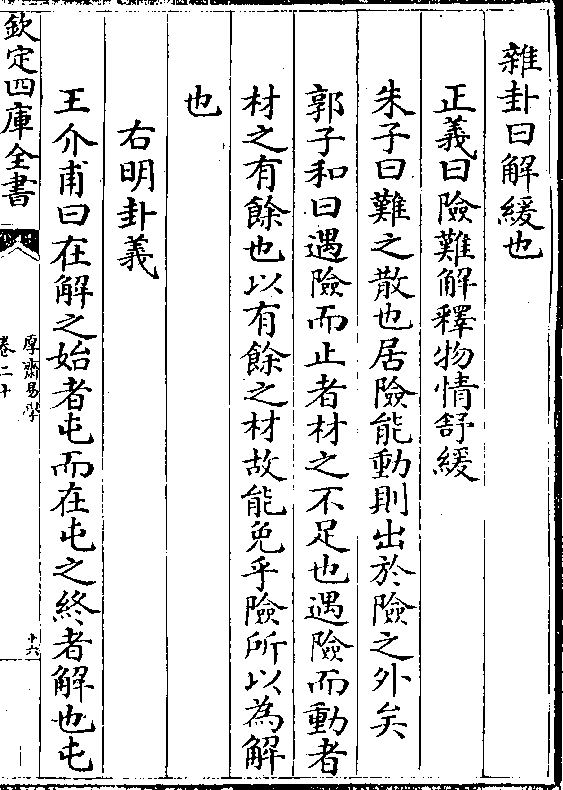 雜卦曰解緩也
正義曰險難解釋物情舒緩
朱子曰難之散也居險能動則出於險之外矣
郭子和曰遇險而止者材之不足也遇險而動者
材之有餘也以有餘之材故能免乎險所以為解
也
右明卦義
王介甫曰在解之始者屯而在屯之終者解也屯
欽定四庫全書
厚齋易學
卷二十
十六